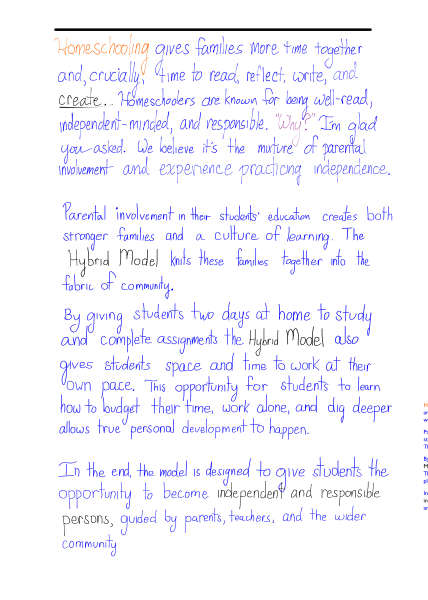 Homeschooling gives families more time together
and, crucially, time to read, reflect, write, and
create... Homeschoolers are known for being well-read,
independent-minded, and responsible. "Why?" I'm glad
you asked. We believe it's the mixture of parental
involvement and experience practicing independence.
Parental involvement in their students' education creates both
stronger families and a culture of learning. The
Hybrid Model knits these families together into the
fabric of community.
By giving students two days at home to study
and complete assignments the Hybrid Model also
gives students space and time to work at their
own pace. This opportunity for students to learn
how to budget their time, work alone, and dig deeper
allows true personal development to happen.
In the end, the model is designed to give students the
opportunity to become independent and responsible
persons, guided by parents, teachers, and the wider
community